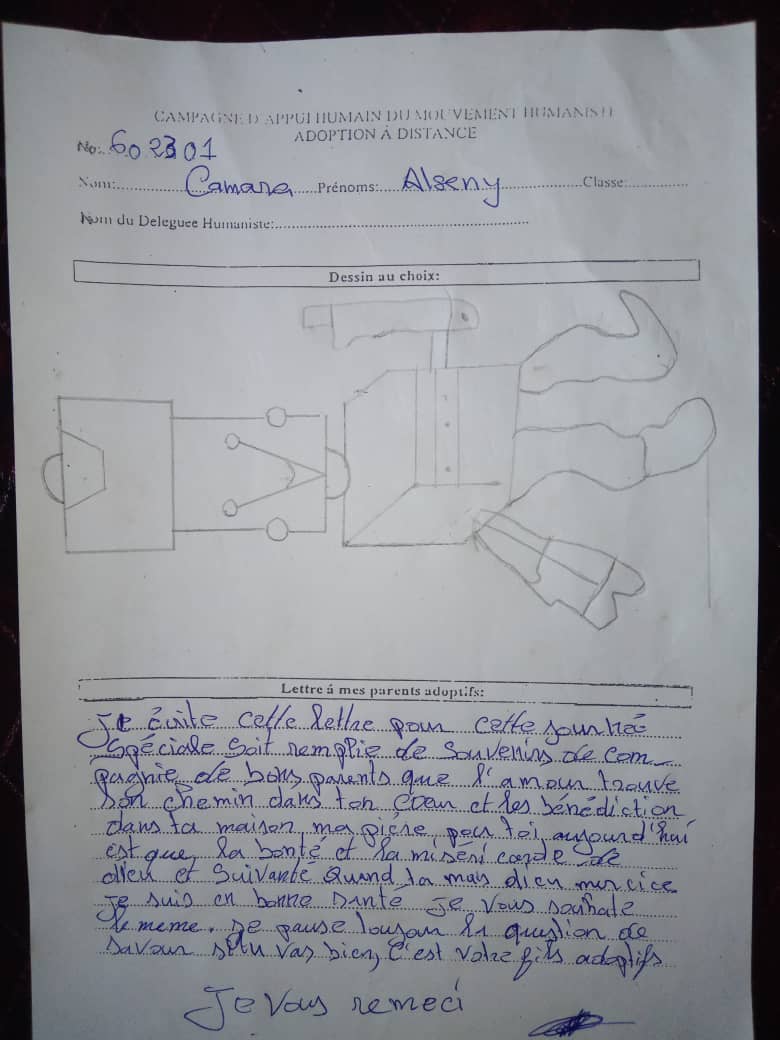 CAMPAGNE D'APPUI HUMAIN DU MOUVEMENT HUMANISTE
ADOPTION Á DISTANCE
No: 602301
Nom: Camara Prénoms: Alseny Classe:
Nom du Deleguee Humaniste:
Dessin au choix:
Lettre á mes parents adoptifs:
Je écrite cette lettre pour cette journéé
Spéciale Soit remplie de Souvenirs de com_
pagnie de bons parents que l'amour trouve
Son chemin dans ton Coeur et les bénédiction
dans ta maison, ma pière pour toi, aujourd'hui
est que la bonté et la miséricorde de
dieu et Suivante Quand ta mais dieu
Je suis en bonne santé Je vous souhate
le meme. Je pause toujour la question de
savoir si tu vas bien, C'est votre fils adoptifs
Je vous remeci